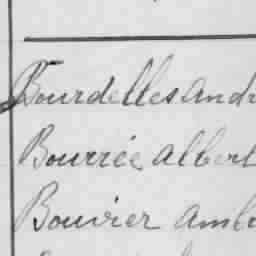 Bourdelles andr
Bourrée albert
Bouvier amb